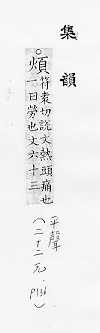 集韻
○煩
符袁切說文熱頭痛也
一曰勞也文六十三
平聲
(二十二元. P136)